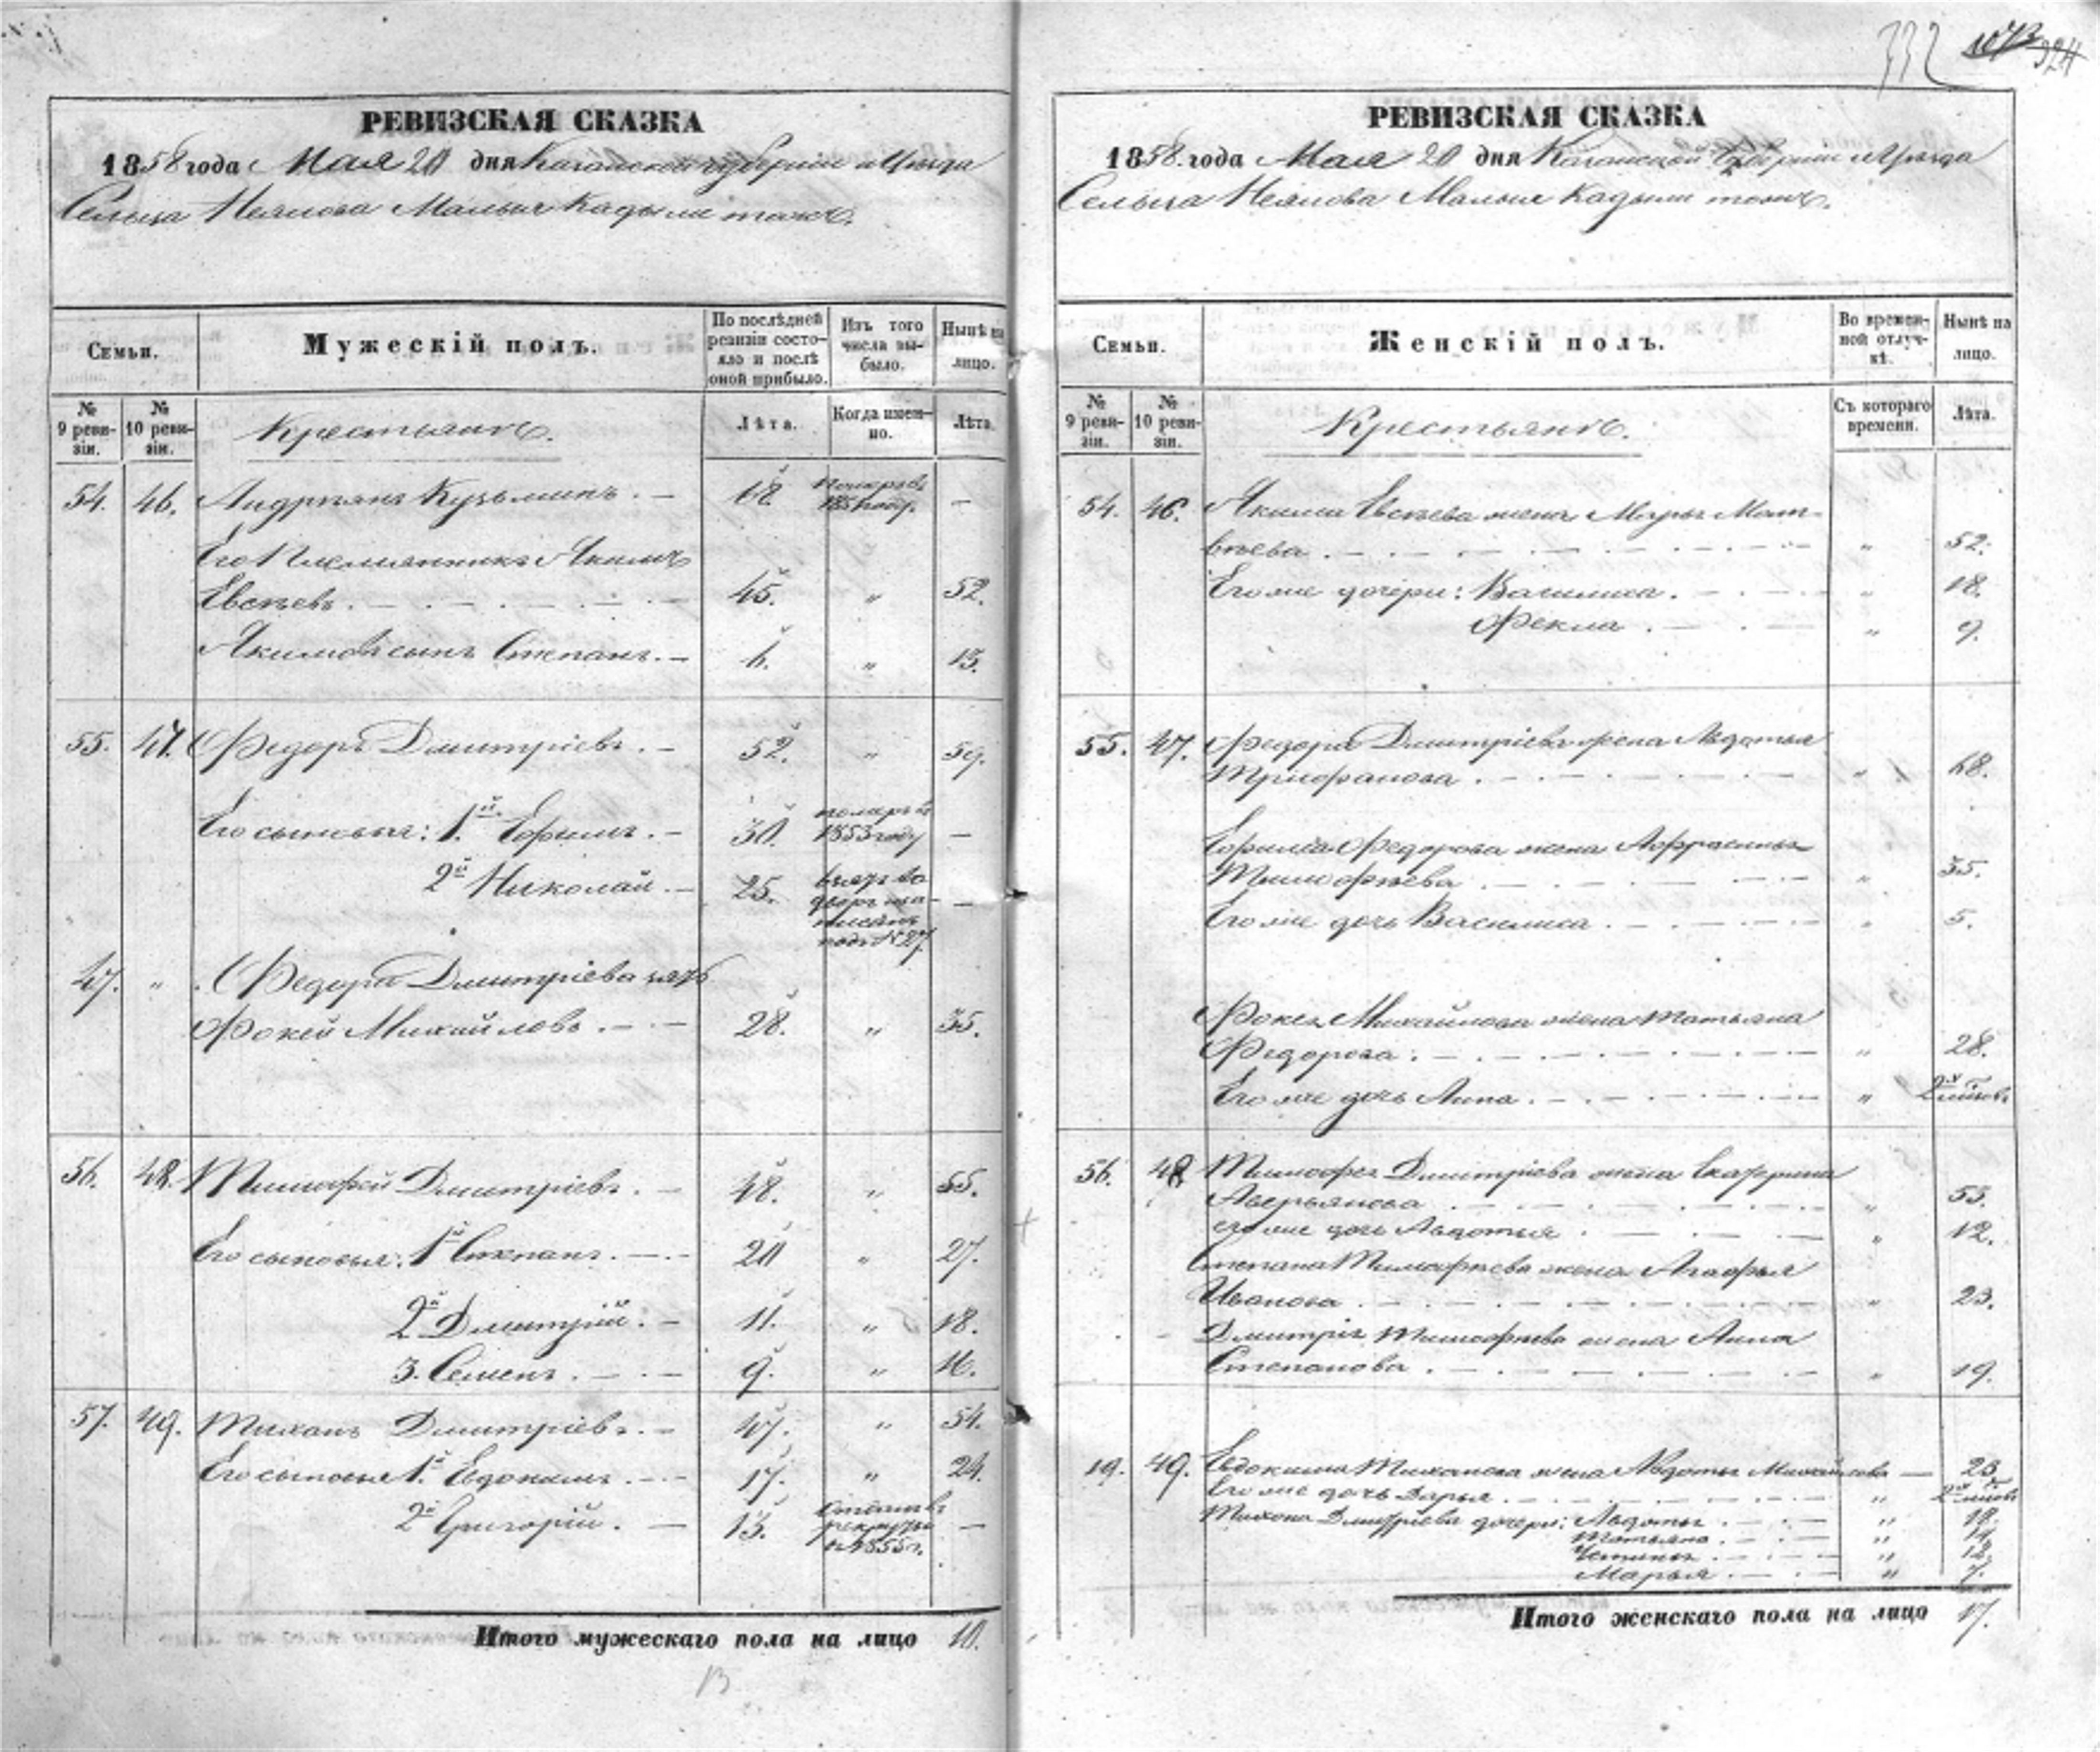 332 1073 324
РЕВИЗСКАЯ СКАЗКА
1858 года Мая 20 дня Казанской губерніи и Уѣзда
Сельца Неялова Малыя Кадыли тожъ.
Семьи.
Мужескій полъ.
По послѣдней ревизіи состояло и послѣ оной прибыло.
Изъ того числа выбыло.
Нынѣ на лицо.
№ 9 ревизіи.
№ 10 ревизіи.
Крестьянъ.
Лѣта.
Когда именно.
Лѣта.
54. 46. Андреянъ Кузьминъ. — 68. померъ въ 1851 году —
Его племянникъ Якимъ
Евсѣевъ. 45. " 52.
Якимовъ сынъ Степанъ. — 6. " 13.
55. 47. Федоръ Дмитріевъ. — 52. " 59.
Его сыновья: 1й Ефимъ. — 30. померъ въ 1853 году —
2й Николай. — 25. —
под № 27.
47. " Федора Дмитріева зять
Фокей Михайловъ. 28. " 35.
56. 48. Тимофей Дмитріевъ. — 48. " 55.
Его сыновья: 1й Степанъ. 20 " 27.
2й Дмитрій. — 11. " 18.
3. Семенъ. 9. " 16.
57. 49. Тиханъ Дмитріевъ. — 47. " 54.
Его сыновья 1й Евдокимъ. 17. " 24.
2й Григорій. — 13. рекруты въ 1855 г. —
Итого мужескаго пола на лицо 10.
13
РЕВИЗСКАЯ СКАЗКА
1858. года Мая 20 дня Казанской Губерніи и Уѣзда
Сельца Неялова Малыя Кадыли тожъ.
Семьи.
Женскій полъ.
Во временной отлучкѣ.
Нынѣ на лицо.
№ 9 ревизіи.
№ 10 ревизіи.
Крестьянъ.
Съ котораго времени.
Лѣта.
54. 46. Якима Евсѣева жена Марья Мат-
вѣева. " 52.
Его же дочери: Василиса. " 18.
Фекла. " 9.
55. 47. Федора Дмитріева жена Авдотья
Трифанова. " 68.
Ефима Федорова жена Афросинья
Тимофѣева " 35.
Его же дочь Василиса. " 5.
Фокея Михайлова жена Татьяна
Федорова. " 28.
Его же дочь Анна. "
56. 48. Тимофея Дмитріева жена Екатерина
Аверьянова " 55.
его же дочь Авдотья " 12.
Степана Тимофѣева жена Агафья
Иванова. " 23.
Дмитрія Тимофѣева жена Анна
Степанова. " 19.
19. 49. Евдокима Тиханова жена Авдотья Михайлова — 23.
Его же дочь Дарья. "
Тихона Дмитріева дочери: Авдотья. " 18.
Татьяна. " 14.
Устинья. " 12.
Марья. " 7.
Итого женскаго пола на лицо 17.